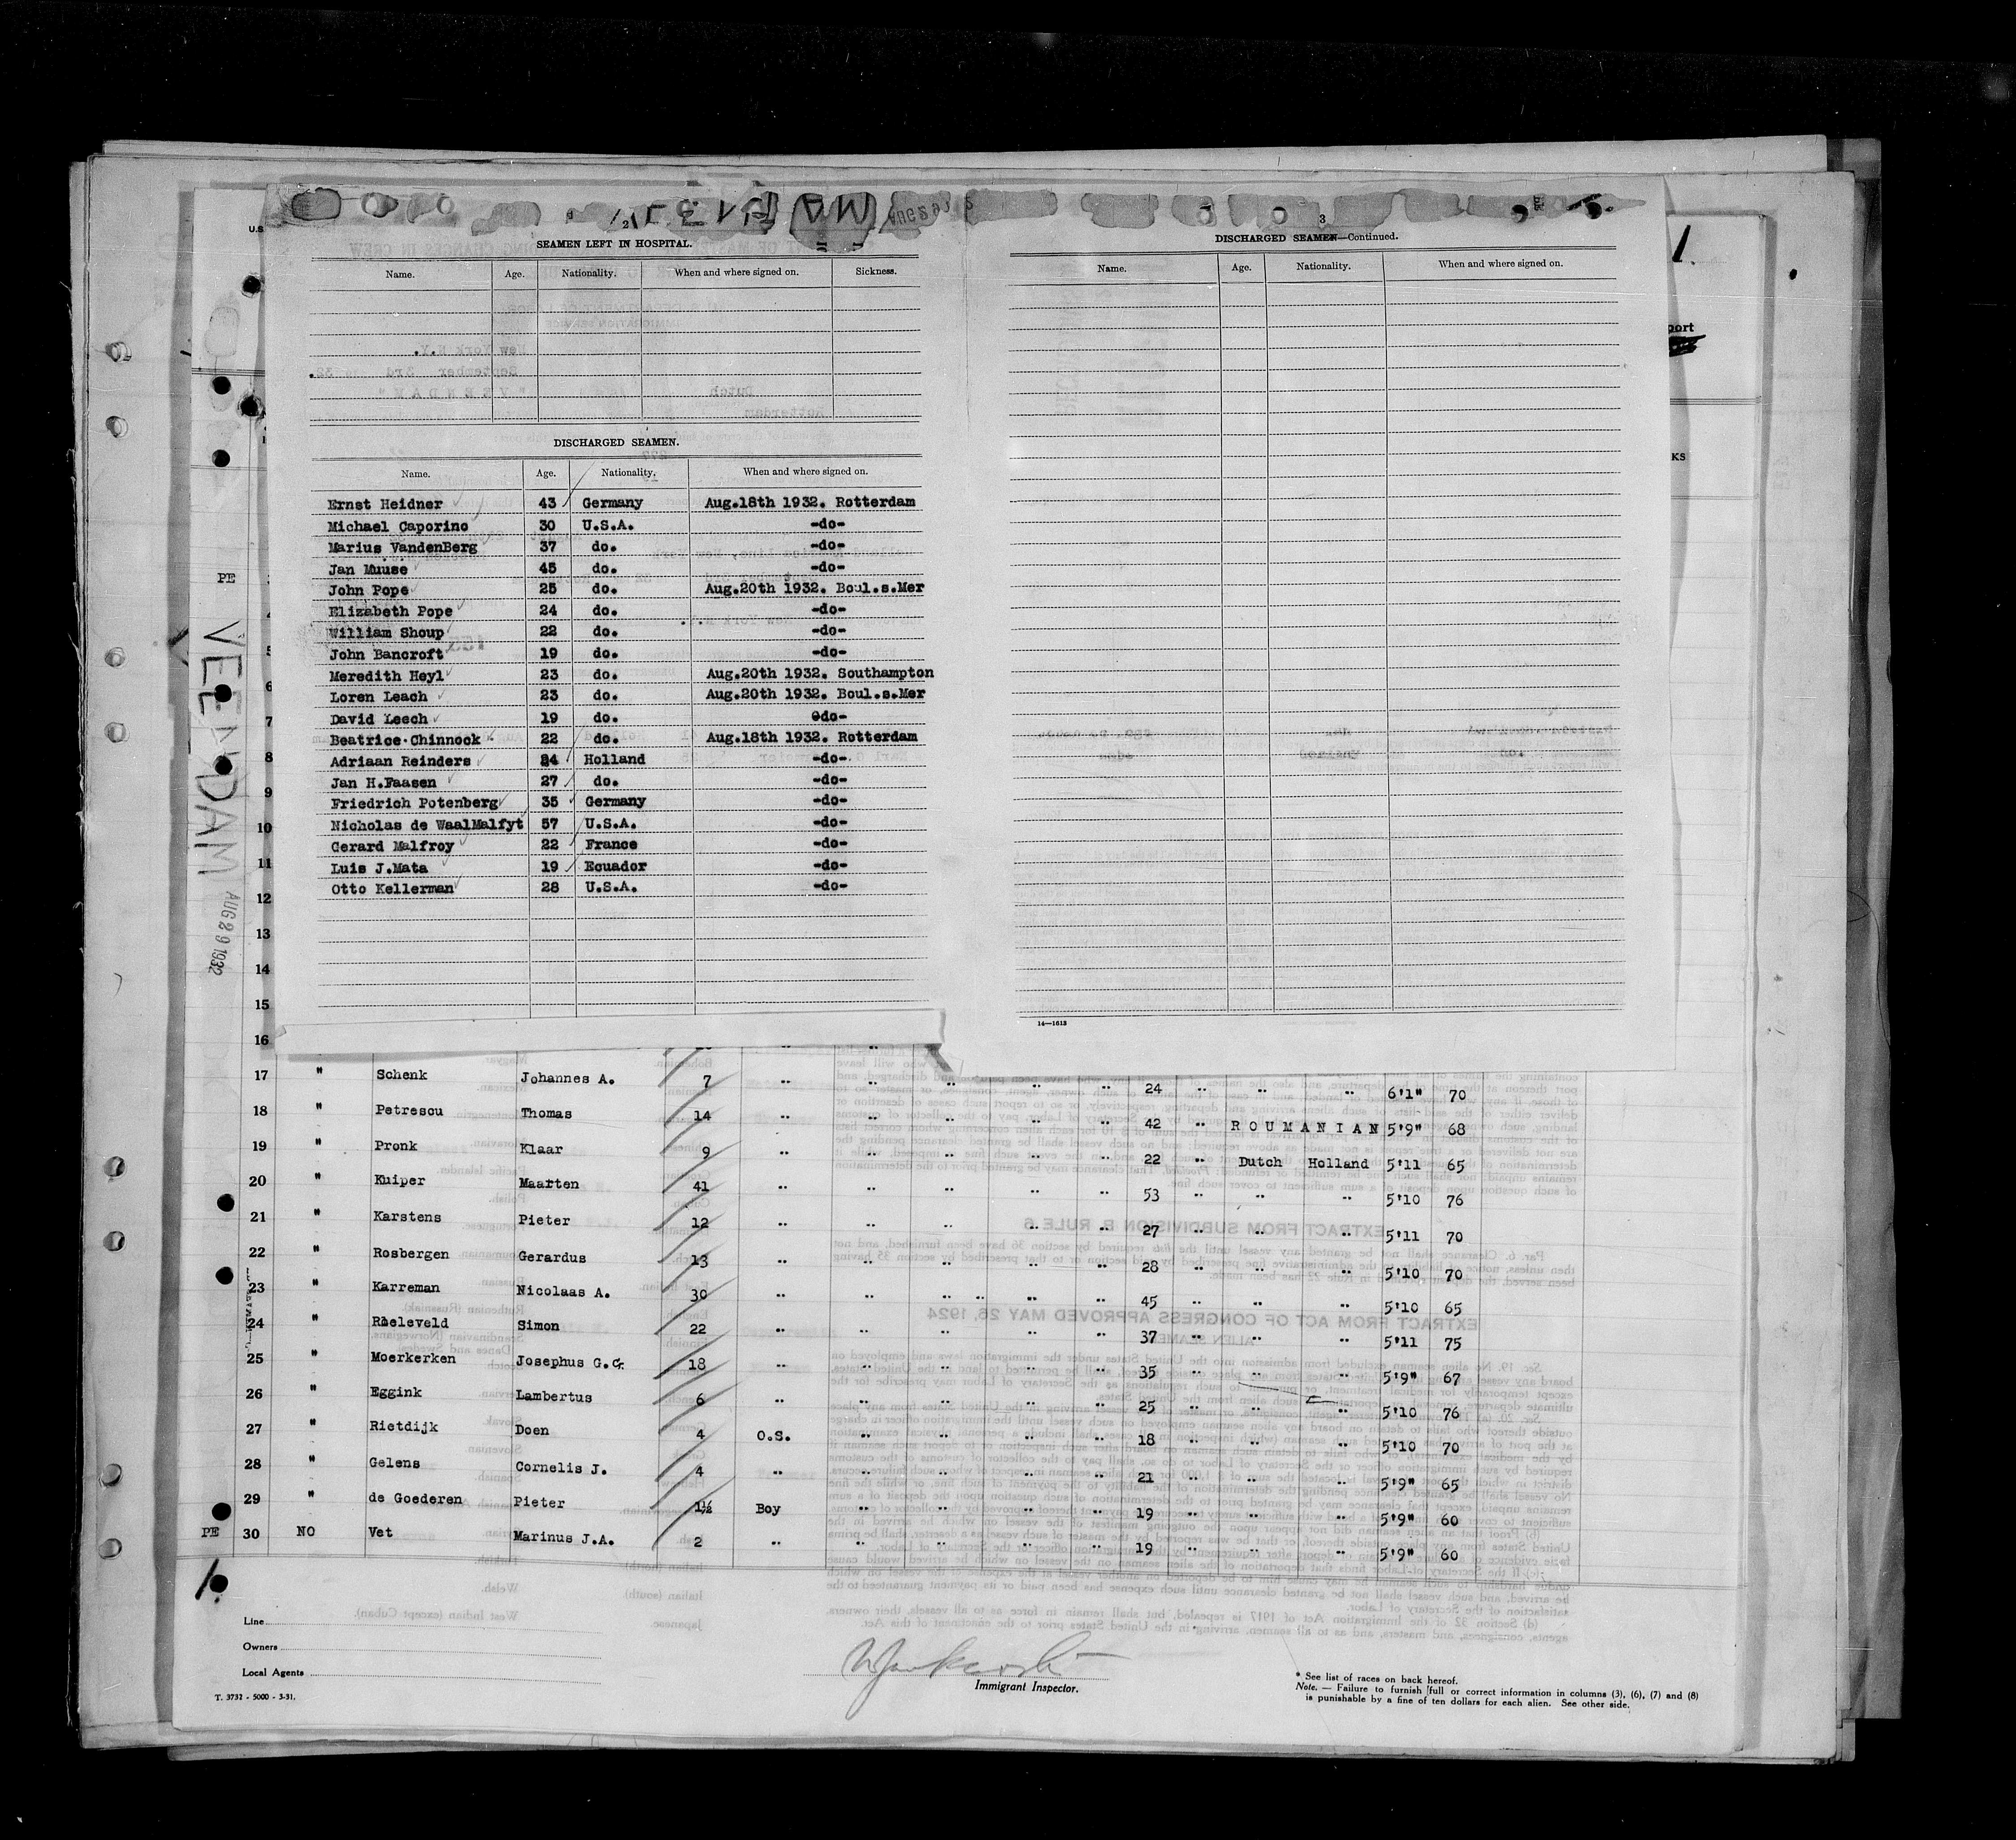 2
SEAMEN LEFT IN HOSPITAL.
Name. Age. Nationality. When and where signed on. Sickness.
DISCHARGED SEAMEN.
Name. Age. Nationality. When and where signed on.
Ernst Heidner 43 Germany Aug.18th 1932. Rotterdam
Michael Caporino 30 U.S.A. -do-
Marius VandenBerg 37 do. -do-
Jan Muuse 45 do. -do-
John Pope 25 do. Aug.20th 1932. Boul.s.Mer
Elizabeth Pope 24 do. -do-
William Shoup 22 do. -do-
John Bancroft 19 do. -do-
Meredith Heyl 23 do. Aug.20th 1932. Southampton
Loren Leach 23 do. Aug.20th 1932. Boul.s.Mer
David Leech 19 do. -do-
Beatrice Chinnock 22 do. Aug.18th 1932. Rotterdam
Adriaan Reinders 24 Holland -do-
Jan H.Faasen 27 do. -do-
Friedrich Potenberg 35 Germany -do-
Nicholas de WaalMalfyt 57 U.S.A. -do-
Gerard Malfroy 22 France -do-
Luis J.Mata 19 Ecuador -do-
Otto Kellerman 28 U.S.A. -do-
3
DISCHARGED SEAMEN—Continued.
Name. Age. Nationality. When and where signed on.
14—1613
U.S
1.
port
KS
PE
VEENDAM
AUG 29 1932
5
6
7
8
9
10
11
12
13
14
15
16
17 " Schenk Johannes A. 7 " " " " " 24 " " " 6'1" 70
18 " Petrescu Thomas 14 " " " " " 42 " ROUMANIAN 5'9" 68
19 " Pronk Klaar 9 " " " " " 22 " Dutch Holland 5'11 65
20 " Kuiper Maarten 41 " " " " " 53 " " " 5'10 76
21 " Karstens Pieter 12 " " " " " 27 " " " 5'11 70
22 " Rosbergen Gerardus 13 " " " " " 28 " " " 5'10 70
23 " Karreman Nicolaas A. 30 " " " " " 45 " " " 5'10 65
24 " Roeleveld Simon 22 " " " " " 37 " " " 5'11 75
25 " Moerkerken Josephus G.C. 18 " " " " " 35 " " " 5'9" 67
26 " Eggink Lambertus 6 " " " " " 25 " " " 5'10 76
27 " Rietdijk Doen 4 O.S. " " " " 18 " " " 5'10 70
28 " Gelens Cornelis J. 4 " " " " " 21 " " " 5'9" 65
29 " de Goederen Pieter 1½ Boy " " " " 19 " " " 5'9" 60
PE 30 NO Vet Marinus J.A. 2 " " " " " 19 " " " 5'9" 60
Line
Owners
Local Agents
T. 3732 - 5000 - 3-31.
Immigrant Inspector.
* See list of races on back hereof.
Note. — Failure to furnish full or correct information in columns (3), (6), (7) and (8)
is punishable by a fine of ten dollars for each alien. See other side.